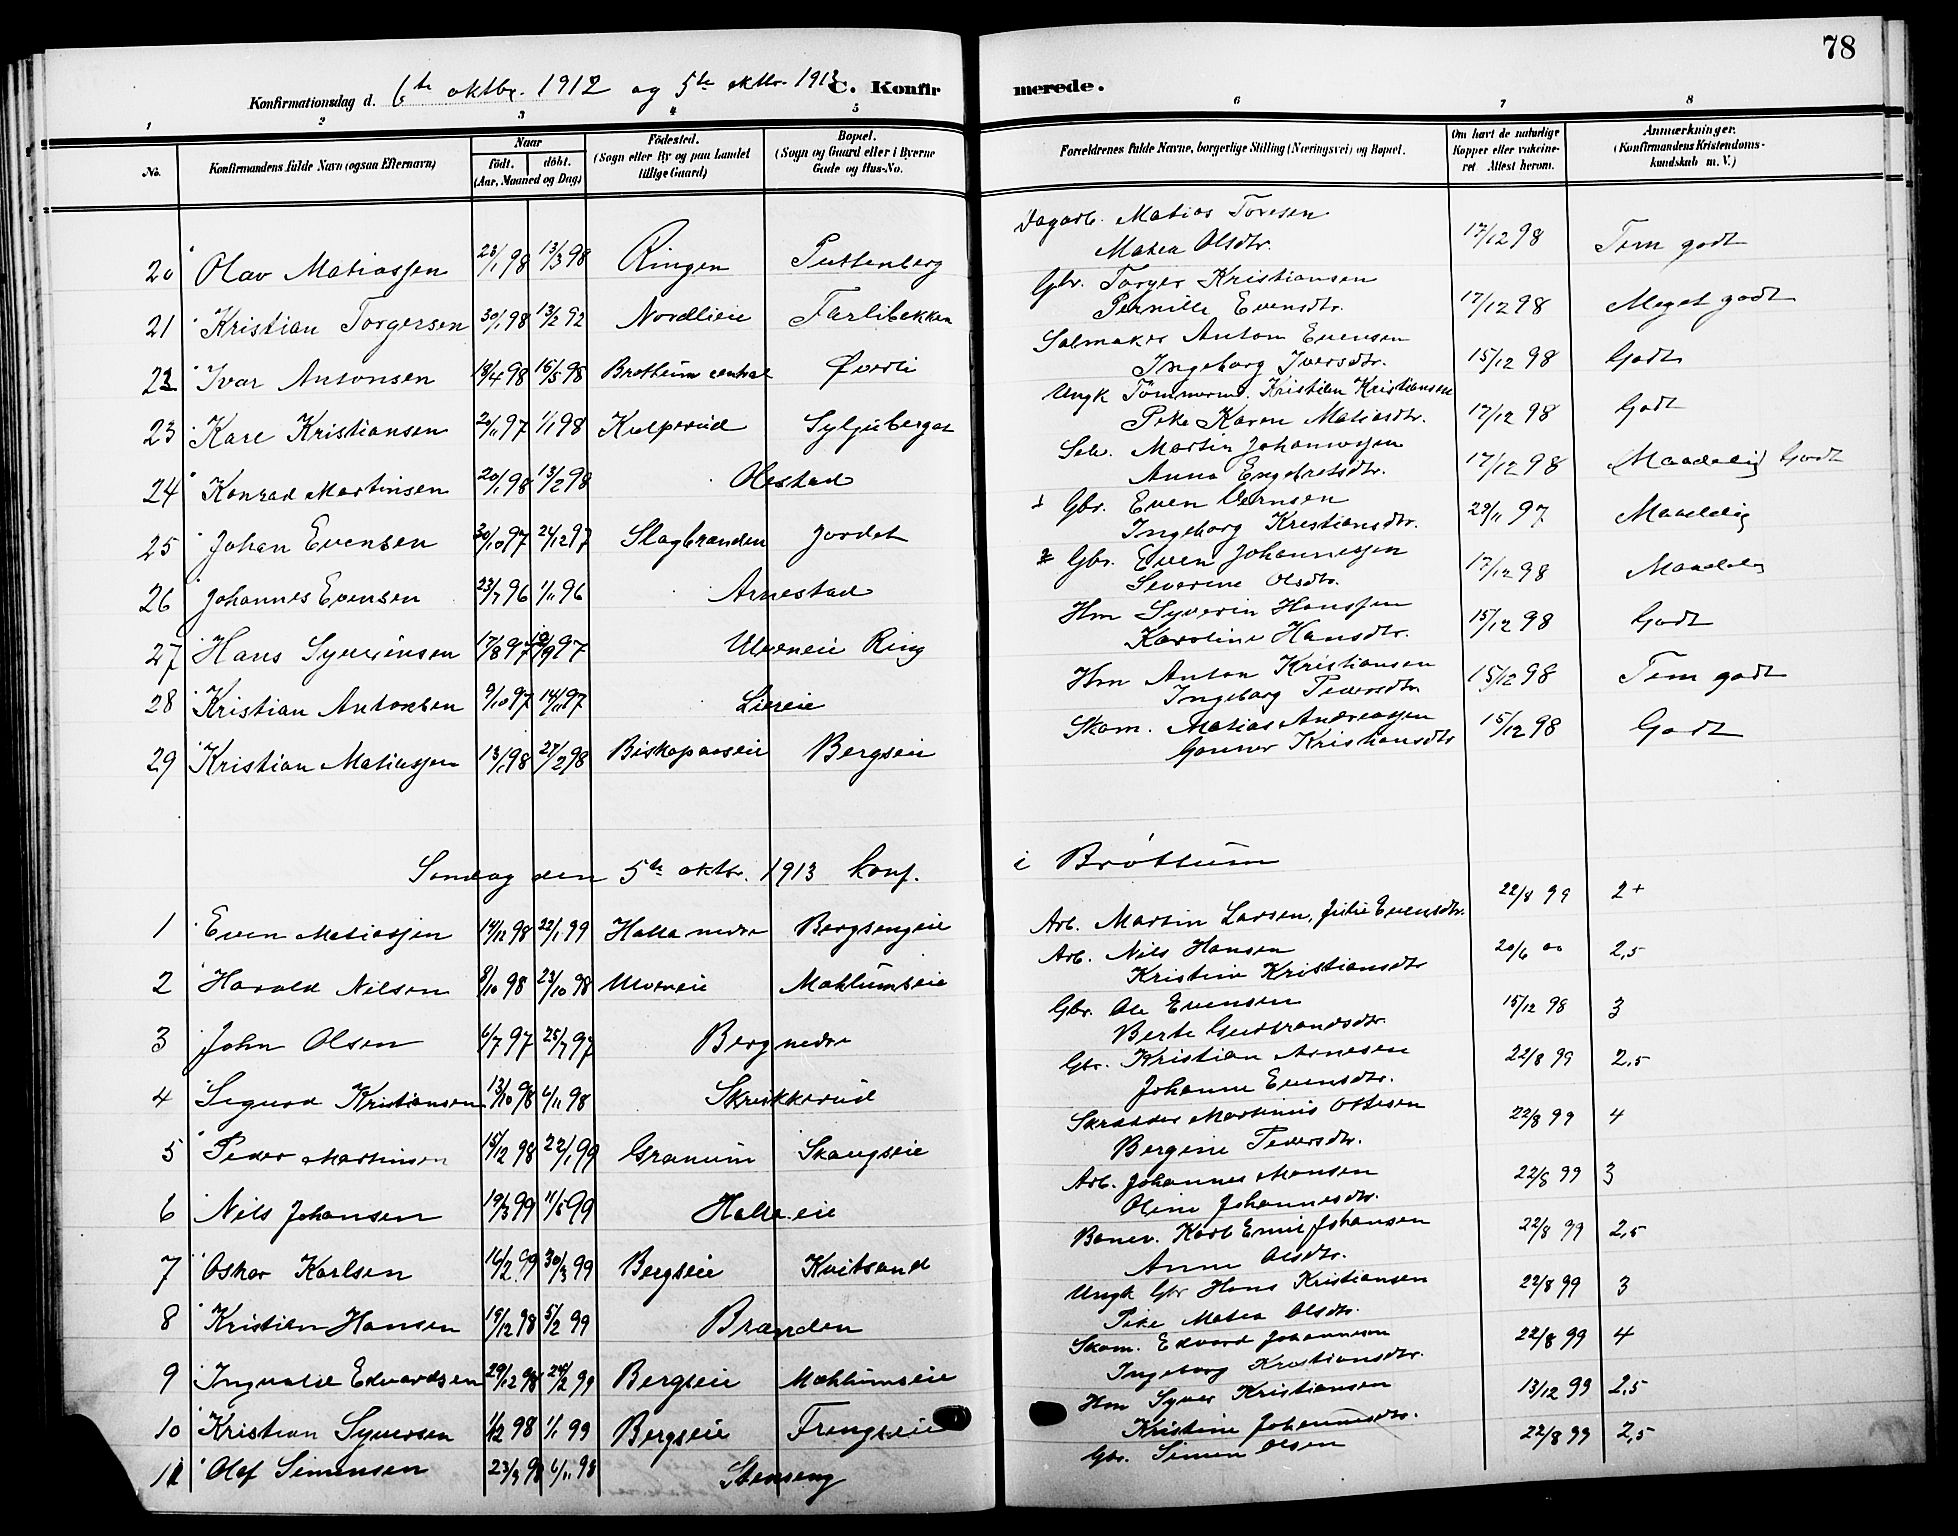 78
Konfirmationsdag d. 6te oktbr. 1912 og 5te oktbr. 1913 C. Konfirmerede.
1 2 3 4 5 6 7 8
No. Konfirmandens fulde Navn (ogsaa Efternavn) Naar födt. döbt. (Aar, Maaned og Dag) Födested. (Sogn eller By og paa Landet tillige Gaard) Bopæl. (Sogn og Gaard eller i Byerne Gade og Hus-No. Forældrenes fulde Navne, borgerlige Stilling (Næringsvei) og Bopæl. Om havt de naturlige Kopper eller vakcineret Attest herom. Anmærkninger. (Konfirmandens Kristendomskundskab m. V.)
Dagarb. Matias Toresen
20 Olav Matiassen 23/1 98 13/3 98 Ringen Puttenberg Matea Olsdtr. 17/12 98 Tem godt
Gbr. Torger Kristiansen
21 Kristian Torgersen 30/1 98 13/2 92 Nordlieie Farlibakken Pernille Evensdtr. 17/12 98 Meget godt
Salmaker Anton Evensen
22 Ivar Antonsen 18/4 98 15/5 98 Brøttum central Øverli Ingeborg Iversdtr. 15/12 98 Godt
Ungk Tömmerm. Kristian Kristiansen
23 Kare Kristiansen 20/11 97 1/1 98 Kulperud Syljuberget Pike Karen Matiasdtr. 17/12 98 Godt
Selv. Martin Johannessen
24 Konrad Martinsen 20/1 98 13/2 98 Olestad Anna Engebretsdtr. 17/12 98 Maadelig Godt
Gbr. Even Evensen
25 Johan Evensen 30/10 97 26/12 97 Slagbranden Jordet Ingeborg Kristiansdtr. 29/11 97 Maadelig
Gbr. Even Johannessen
26 Johannes Evensen 23/7 96 1/11 96 Arnestad Severine Olsdtr. 17/12 98 Maadelig
Hm Syverin Hanssen
27 Hans Syverinsen 17/8 97 19/9 97 Ulverneie Ring Karoline Hansdtr. 15/12 98 Godt
Hm Anton Kristiansen
28 Kristian Antonsen 9/10 97 14/11 97 Liereie Ingeborg Pedersdtr. 15/12 98 Tem godt
Skom. Matias Andreassen
29 Kristian Matiassen 13/1 98 27/2 98 Biskopaaseie Bergseie Gunner Kristiansdtr 15/12 98 Godt
Søndag den 5te oktbr. 1913 konf. i Brøttum
1 Even Matiassen 14/12 98 22/1 99 Halla nedre Bergsengeie Arb. Martin Larsen, Julie Evensdtr. 22/8 99 2+
Arb. Nils Hansen
2 Harald Nilsen 8/10 98 23/10 98 Ulverneie Mæhlumseie Kristine Kristiansdtr 20/6 00 2,5
Gbr. Ole Evensen
3 John Olsen 6/7 97 25/7 97 Berg nedre Berte Gudbrandsdtr. 15/12 98 3
Gbr. Kristian Arnesen
4 Sigurd Kristiansen 13/10 98 6/11 98 Skrikkerud Johanne Evensdtr. 22/8 99 2,5
Skrædder Martinus Ottesen
5 Peder Martinsen 15/12 98 22/1 99 Granum Skaugseie Bergine Pedersdtr. 22/8 99 4
Arb. Johannes Monsen
6 Nils Johansen 19/3 99 11/5 99 Halla eie Oline Johannesdtr. 22/8 99 3
Banev. Karl Emil Johansen
7 Oskar Karlsen 16/2 99 30/3 99 Bergseie Kvitsand Anne Olsdtr. 22/8 99 2,5
Ungk Gbr Hans Kristiansen
8 Kristian Hansen 19/12 98 5/2 99 Brænden Pike Matea Olsdtr. 22/8 99 3
Skom. Edvard Johannesen
9 Ingvald Edvardsen 29/12 98 26/2 99 Bergseie Mæhlumseie Ingeborg Kristiansdtr. 22/8 99 4
Hm Syver Kristiansen
10 Kristian Syversen 1/12 98 1/1 99 Bergseie Frengseie Kristine Johannesdtr. 13/12 99 2,5
11 Olaf Simensen 23/9 98 6/11 98 Stenseng Gbr. Simen Olsen 22/8 99 2,5